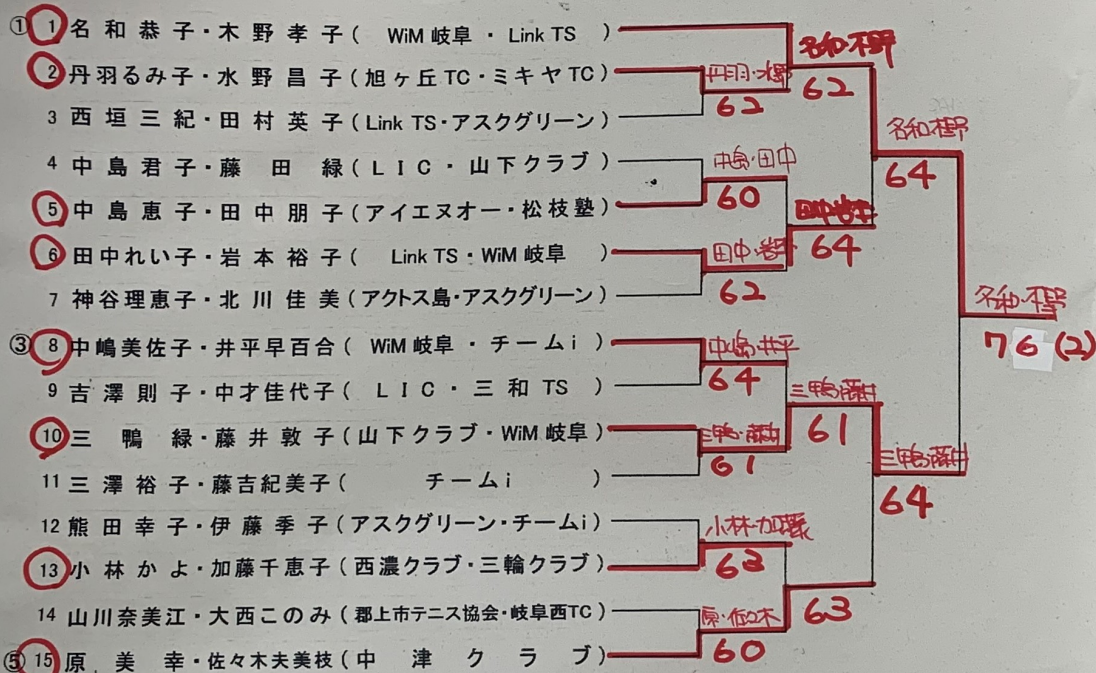 ① 1 名和恭子・木野孝子( WiM岐阜・Link TS )
2 丹羽るみ子・水野昌子(旭ヶ丘TC・ミキヤTC)
3 西垣三紀・田村英子(Link TS・アスクグリーン)
4 中島君子・藤田緑(LIC・山下クラブ)
5 中島恵子・田中朋子(アイエヌオー・松枝塾)
6 田中れい子・岩本裕子( Link TS・WiM岐阜 )
7 神谷理恵子・北川佳美(アクトス島・アスクグリーン)
③ 8 中嶋美佐子・井平早百合( WiM岐阜・チームi )
9 吉澤則子・中才佳代子( LIC・三和TS )
10 三鴨緑・藤井敦子(山下クラブ・WiM岐阜)
11 三澤裕子・藤吉紀美子( チームi )
12 熊田幸子・伊藤季子(アスクグリーン・チームi)
13 小林かよ・加藤千恵子(西濃クラブ・三輪クラブ)
14 山川奈美江・大西このみ(郡上市テニス協会・岐阜西TC)
⑤ 15 原美幸・佐々木夫美枝(中津クラブ)
丹羽・水野
62
中島・田中
60
田中・岩本
62
中島・井平
64
三鴨・藤井
61
小林・加藤
63
原・佐々木
60
名和・木野
62
64
三鴨・藤井
61
63
名和・木野
64
三鴨・藤井
64
名和・木野
76(2)